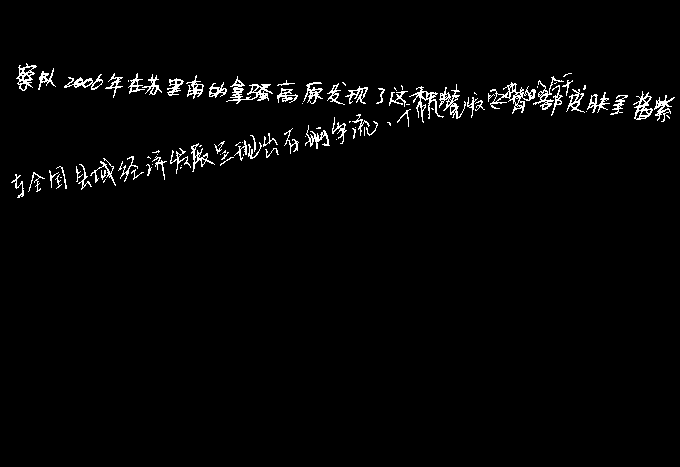 察队2006年在苏里南的拿骚高原发现了这种蟾皮肤呈酱紫
与全国县域经济发展呈现出百舸争流、千